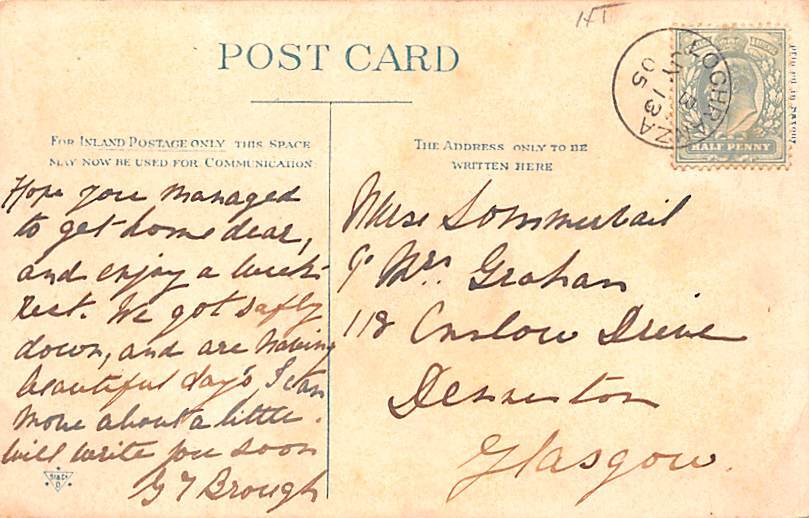 POST CARD
LOCHRANZA
JY 13
05
HALF PENNY
For Inland Postage only this Space
may now be used for Communication
The Address only to be
written here
Hope you managed
to get home dear,
and enjoy a week's
rest. We got safly
down, and are having
beautiful day's, I can
move about a little.
will write you soon
G Y Brough
Nurse Sommervail
c/o Mrs. Graham
118 Onslow Drive
Dennistoun
Glasgow.